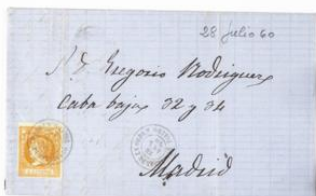 28 julio 60
Gregorio Rodriguez
Caba baja 32 y 34
Madrid